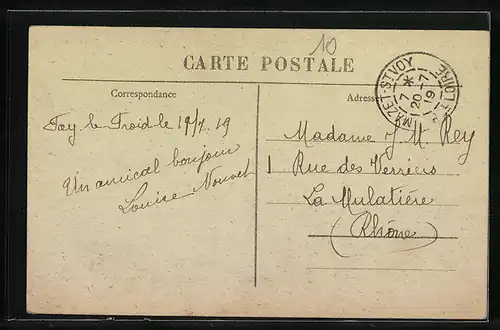 10
CARTE POSTALE
Correspondance
Adresse
MAZET-ST-VOY
7 *
20 -7
19
HTE LOIRE
Fay le Froid le 19/7 19
Un amical bonjour
Louise Nouvet
Madame J M Rey
1 Rue des Verriers
La Mulatière
(Rhône)